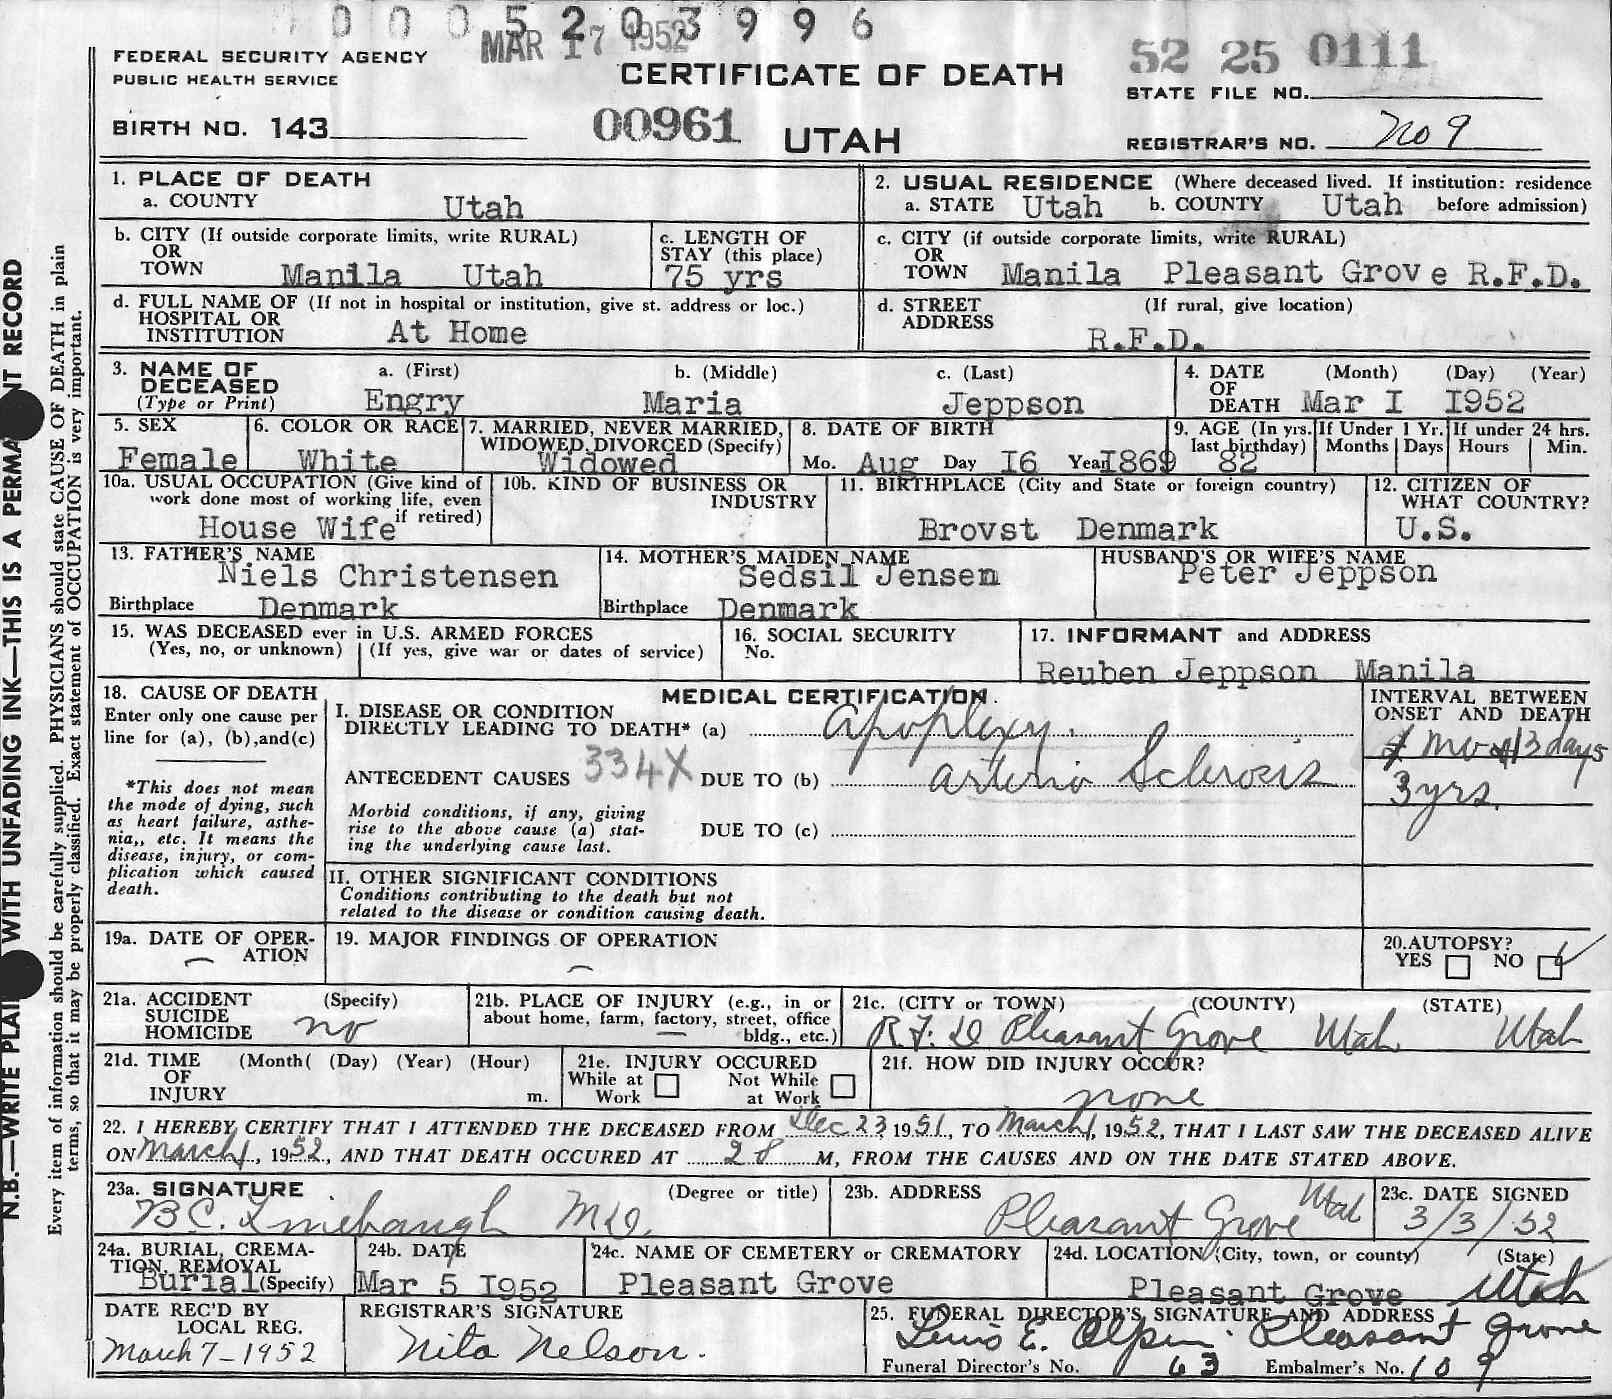 0 0 0 5 2 0 3 9 9 6
MAR 17 1952
FEDERAL SECURITY AGENCY
PUBLIC HEALTH SERVICE
CERTIFICATE OF DEATH
52 25 0111
STATE FILE NO.
BIRTH NO. 143
00961
UTAH
REGISTRAR'S NO. No 9
1. PLACE OF DEATH
a. COUNTY Utah
2. USUAL RESIDENCE (Where deceased lived. If institution: residence before admission)
a. STATE Utah b. COUNTY Utah
b. CITY (If outside corporate limits, write RURAL)
OR
TOWN Manila Utah
c. LENGTH OF
STAY (this place)
75 yrs
c. CITY (if outside corporate limits, write RURAL)
OR
TOWN Manila Pleasant Grove R.F.D.
d. FULL NAME OF (If not in hospital or institution, give st. address or loc.)
HOSPITAL OR
INSTITUTION At Home
d. STREET (If rural, give location)
ADDRESS
R.F.D.
3. NAME OF
DECEASED
(Type or Print)
a. (First) b. (Middle) c. (Last)
Engry Maria Jeppson
4. DATE (Month) (Day) (Year)
OF
DEATH Mar I I952
5. SEX
Female
6. COLOR OR RACE
White
7. MARRIED, NEVER MARRIED,
WIDOWED, DIVORCED (Specify)
Widowed
8. DATE OF BIRTH
Mo. Aug Day I6 Year I869
9. AGE (In yrs.
last birthday)
82
If Under 1 Yr.
Months Days
If under 24 hrs.
Hours Min.
10a. USUAL OCCUPATION (Give kind of
work done most of working life, even
if retired)
House Wife
10b. KIND OF BUSINESS OR
INDUSTRY
11. BIRTHPLACE (City and State or foreign country)
Brovst Denmark
12. CITIZEN OF
WHAT COUNTRY?
U.S.
13. FATHER'S NAME
Niels Christensen
Birthplace Denmark
14. MOTHER'S MAIDEN NAME
Sedsil Jensen
Birthplace Denmark
HUSBAND'S OR WIFE'S NAME
Peter Jeppson
15. WAS DECEASED ever in U.S. ARMED FORCES
(Yes, no, or unknown) (If yes, give war or dates of service)
16. SOCIAL SECURITY
No.
17. INFORMANT and ADDRESS
Reuben Jeppson Manila
18. CAUSE OF DEATH
Enter only one cause per
line for (a), (b), and(c)
*This does not mean
the mode of dying, such
as heart failure, asthe-
nia,, etc. It means the
disease, injury, or com-
plication which caused
death.
MEDICAL CERTIFICATION.
I. DISEASE OR CONDITION
DIRECTLY LEADING TO DEATH* (a) apoplexy.
ANTECEDENT CAUSES 334X DUE TO (b) arterio Sclerosis
Morbid conditions, if any, giving
rise to the above cause (a) stat-
ing the underlying cause last.
DUE TO (c)
INTERVAL BETWEEN
ONSET AND DEATH
mo 13 days
3 yrs.
II. OTHER SIGNIFICANT CONDITIONS
Conditions contributing to the death but not
related to the disease or condition causing death.
19a. DATE OF OPER-
ATION
19. MAJOR FINDINGS OF OPERATION
20. AUTOPSY?
YES NO
21a. ACCIDENT (Specify)
SUICIDE
HOMICIDE no
21b. PLACE OF INJURY (e.g., in or
about home, farm, factory, street, office
bldg., etc.)
21c. (CITY or TOWN) (COUNTY) (STATE)
R.F.D Pleasant Grove Utah Utah
21d. TIME (Month( (Day) (Year) (Hour)
OF
INJURY m.
21e. INJURY OCCURED
While at Work Not While at Work
21f. HOW DID INJURY OCCUR?
none
22. I HEREBY CERTIFY THAT I ATTENDED THE DECEASED FROM Dec 23 1951, TO March 1, 1952, THAT I LAST SAW THE DECEASED ALIVE
ON March 1, 1952, AND THAT DEATH OCCURED AT M, FROM THE CAUSES AND ON THE DATE STATED ABOVE.
23a. SIGNATURE (Degree or title)
B C. Linebaugh M.D.
23b. ADDRESS
Pleasant Grove Utah
23c. DATE SIGNED
3/3/52
24a. BURIAL, CREMA-
TION, REMOVAL
Burial (Specify)
24b. DATE
Mar 5 I952
24c. NAME OF CEMETERY or CREMATORY
Pleasant Grove
24d. LOCATION (City, town, or county) (State)
Pleasant Grove Utah
DATE REC'D BY
LOCAL REG.
March 7-1952
REGISTRAR'S SIGNATURE
Nita Nelson.
25. FUNERAL DIRECTOR'S SIGNATURE AND ADDRESS
E. Olpin. Pleasant Grove
Funeral Director's No. 63 Embalmer's No. 109
N.B.—WRITE PLAI WITH UNFADING INK—THIS IS A PERMA NT RECORD
Every item of information should be carefully supplied. PHYSICIANS should state CAUSE OF DEATH in plain
terms, so that it may be properly classified. Exact statement of OCCUPATION is very important.